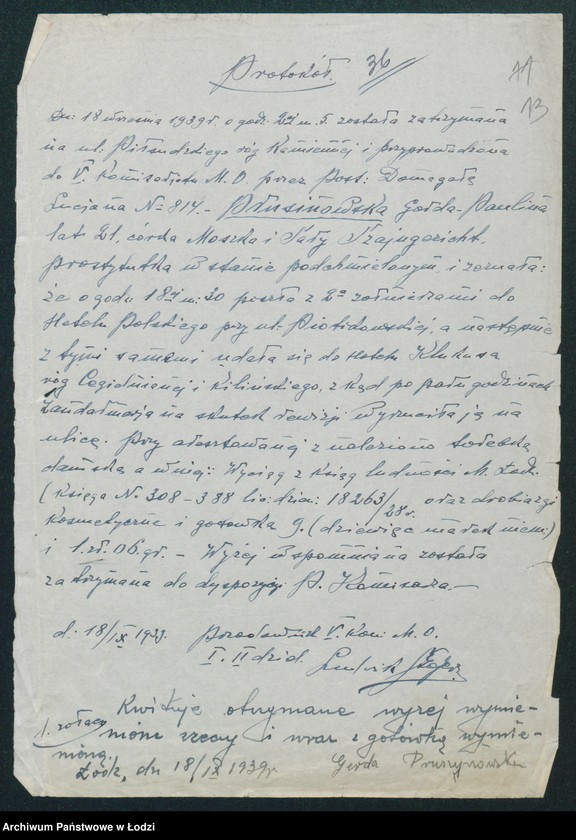 Protokół. 36
71
13
Dn: 18 września 1939 r. o godz: 22 m. 5 została zatrzymana
na ul. Piłsudskiego róg Kamiennej i przyprowadzona
do V. Komisarjatu M.O. przez Post: Domagałę
Lucjana No 814. - Prusinowska Gerda-Paulina
lat 21, córka Moszka i Sały Szajngericht,
prostytutka w stanie podchmielonym, i zeznała:
że o godz. 18 m: 30 poszła z 2a żołnierzami do
Hotelu Polskiego przy ul. Piotrkowskiej, a następnie
z tymi samemi udała się do Hotelu Klukasa
róg Cegielnianej i Kilińskiego, z kąd po paru godzinach
Żandarmerja na skutek rewizji wyrzuciła ją na
ulicę. Przy aresztowanej znaleziono torebkę
damską a w niej: Wyciąg z Ksiąg ludności M. Łodzi
(Księga No. 308-388 lio: dzia: 18263/28 r. oraz drobiazgi
kosmetyczne i gotówka 9. (dziewięć marek niem:)
i 1. zł. 06. gr. - Wyżej wspomniana została
zatrzymana do dyspozycji P. Komisarza. -
d: 18/IX 1939. Przodownik V. Kom: M.O.
I. II dziel. Ludwik
Kwituję otrzymane wyżej wymie-
nione rzeczy i wraz z gotówką wymie-
nioną.
Łódź, dn 18/IX 1939 r Gerda Pruszynowska
Archiwum Państwowe w Łodzi